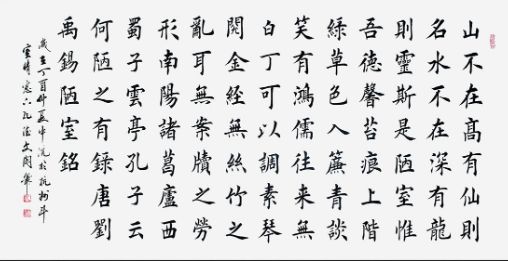 山不在高有仙則
名水不在深有龍
則靈斯是陋室惟
吾德馨苔痕上階
綠草色入簾青談
笑有鴻儒往來無
白丁可以調素琴
閱金經無絲竹之
亂耳無案牘之勞
形南陽諸葛廬西
蜀子雲亭孔子云
何陋之有錄唐劉
禹錫陋室銘
歲在丁酉